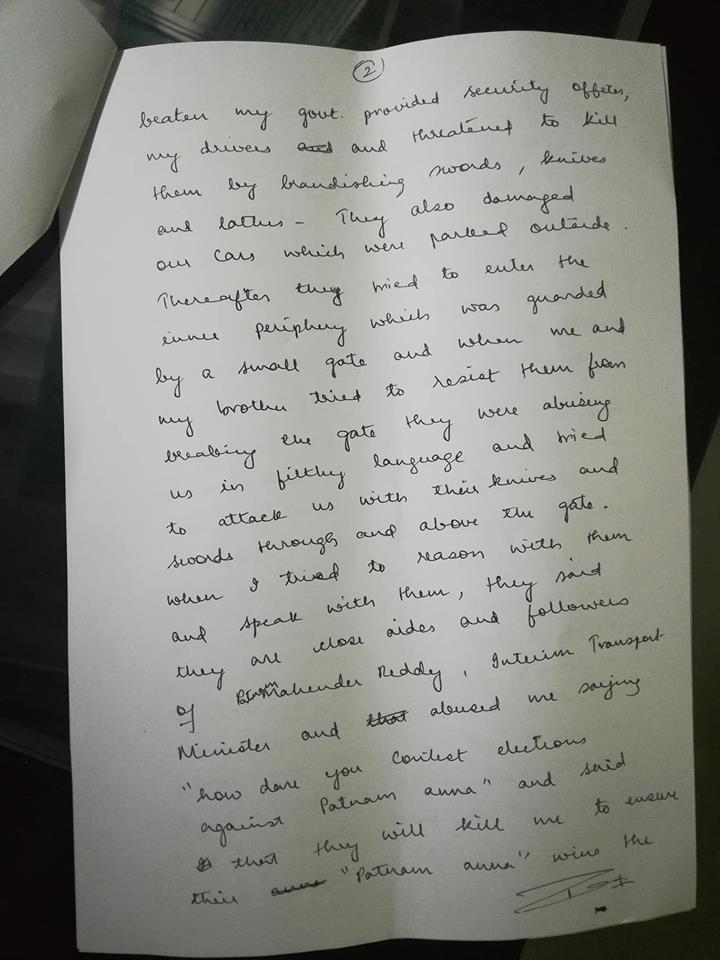 2
beaten my govt. provided security offeres,
my drivers and and threatened to kill
them by brandishing swords, knives
and lathis - They also damaged
our cars which were parked outside.
Thereafter they tried to enter the
inner periphery which was guarded
by a small gate and when me and
my brother tried to resist them from
breaking the gate they were abusing
us in filthy language and tried
to attack us with their knives and
swords through and above the gate.
when I tried to reason with them
and speak with them, they said
they are close aides and followers
of Patnam Mahender Reddy, Interim Transport
Minister and that abused me saying
"how dare you contest elections
against Patnam anna" and said
that they will kill me to ensure
their anna "Patnam anna" wins the